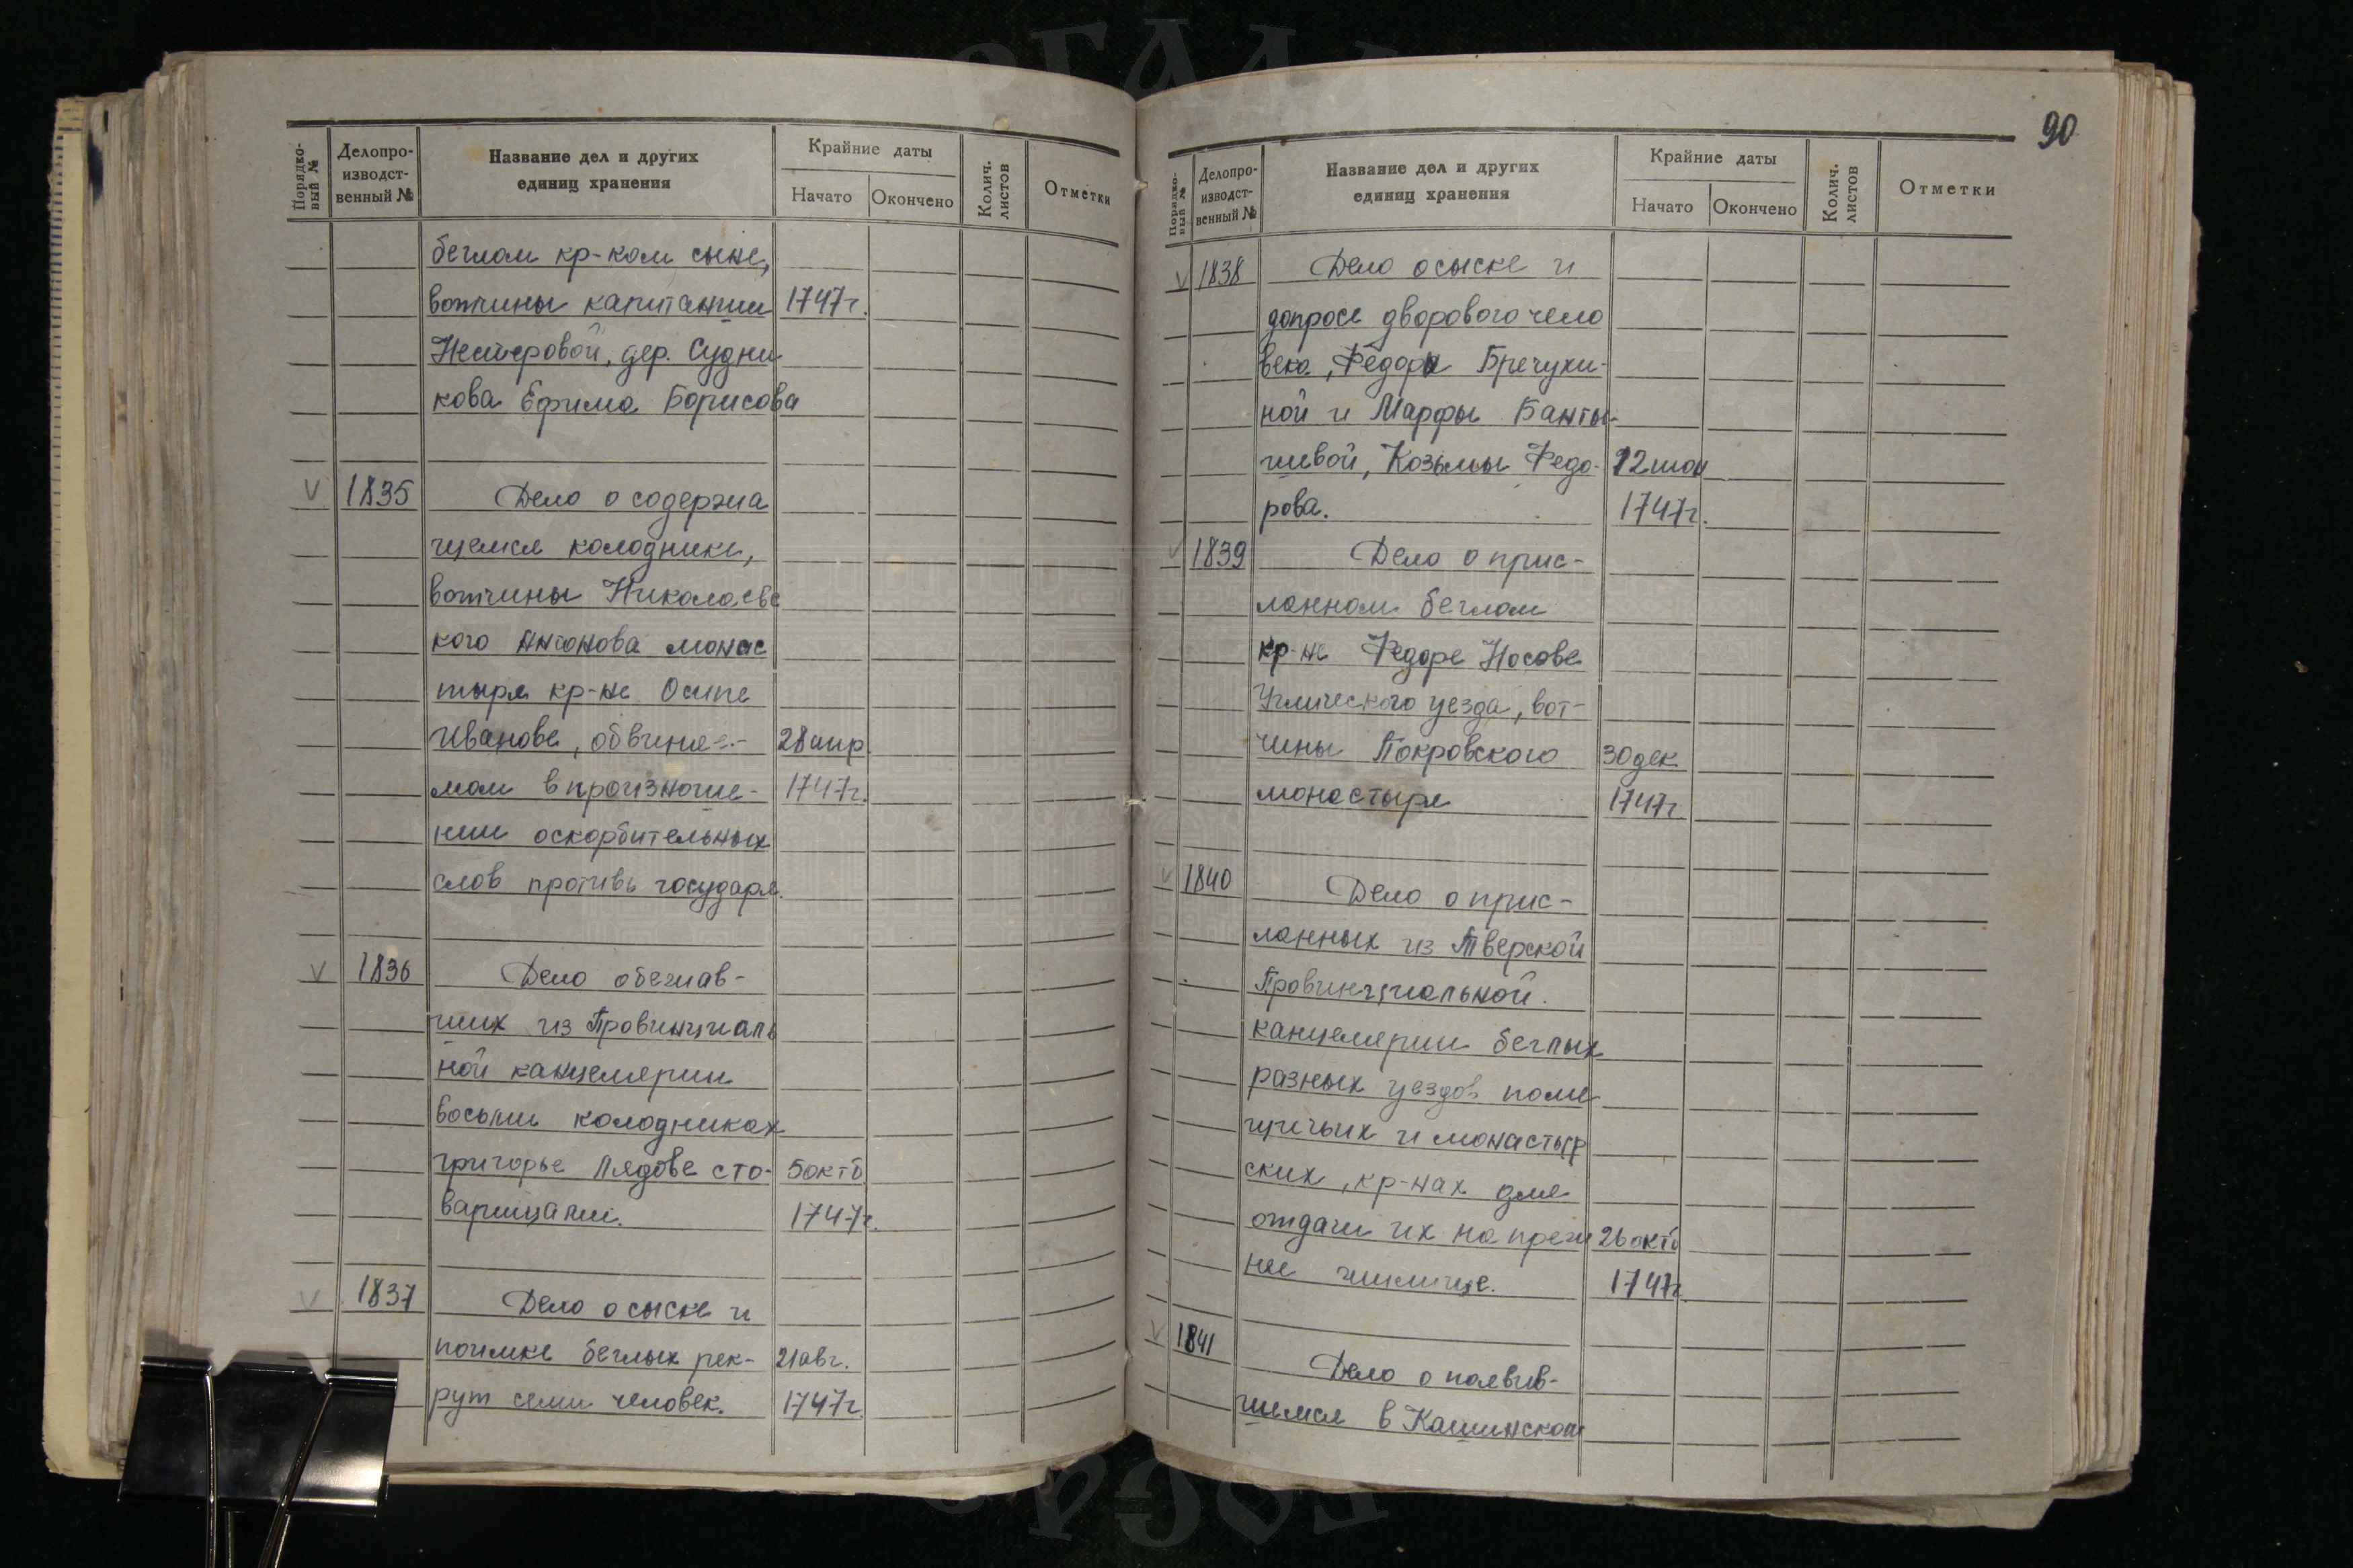 Порядко-
вый №
Делопро-
изводст-
венный №
Название дел и других
единиц хранения
Крайние даты
Начато
Окончено
Колич.
листов
Отметки
беглом кр-ком сыне,
вотчины капитанши 1747г.
Нестеровой, дер. Судни
кова Ефима Борисова
V 1835 Дело о содержа
щемся колоднике,
вотчины Николаевс
кого Антонова монас
тыря кр-не Осипе
Иванове, обвиняе- 28 апр.
мом в произноше- 1747г.
нии оскорбительных
слов противь государя.
V 1836 Дело обежав-
ших из Провинциаль
ной канцелярии
восьми колодниках
григорье Лядове с то- 5 октб
варищами. 1747г.
V 1837 Дело о сыске и
поимке беглых рек- 21 авг.
рут семи человек. 1747г.
90
Порядко-
вый №
Делопро-
изводст-
венный №
Название дел и других
единиц хранения
Крайние даты
Начато
Окончено
Колич.
листов
Отметки
V 1838 Дело о сыске и
допросе дворового чело
века, Федоры Бречухи-
ной и Марфы Банты-
шевой, Козьмы Федо-
рова. 1747г.
V 1839 Дело о прис-
ланном беглом
кр-не Федоре Носове
Угличского уезда, вот-
чины Покровского 30 дек.
монастыря 1747г
V 1840 Дело о прис-
ланных из Тверской
Провинциальной.
канцелярии беглых
разных уездов поме
щичьих и монастыр
ских, кр-нах для
отдачи их на преж 26 октб
нее жилище. 1747г
V 1841
Дело о появив-
шемся в Кашинском